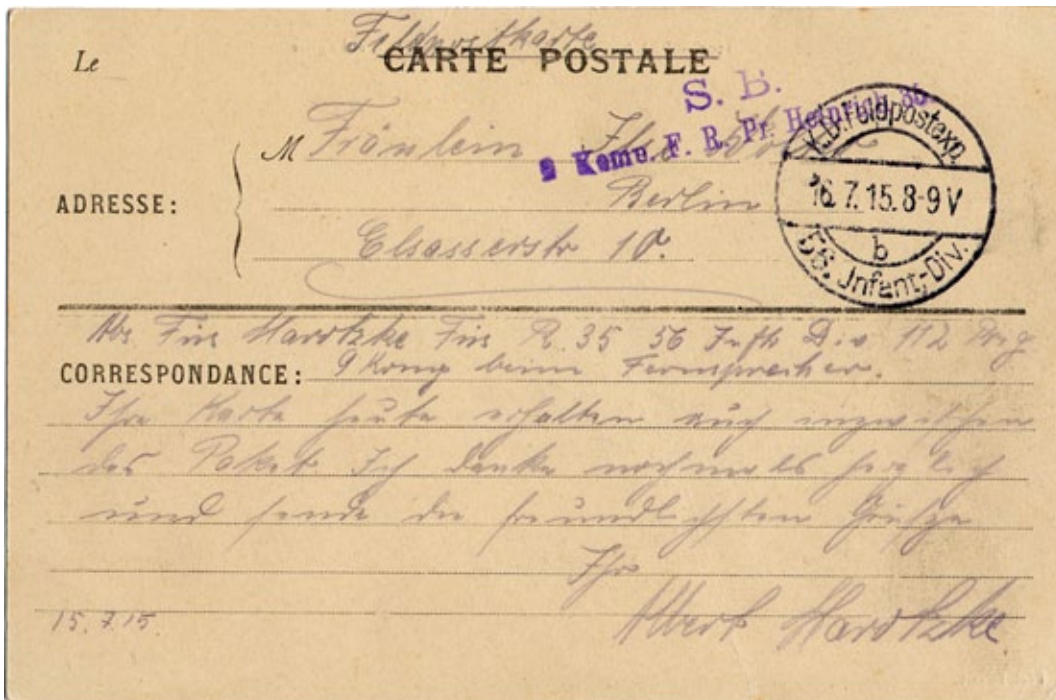 Feldpostkarte
Le
CARTE POSTALE
S. B.
9 Komp. F. R. Pr. Heinrich 35
K.D. Feldpostexp.
16.7.15.8-9V
b
56. Infant.-Div.
M Fräulein
Berlin
ADRESSE:
Elsasserstr 10.
Abs Füs Harotzke Füs R. 35 56 Inftr Div. 112 Brig
CORRESPONDANCE: 9 Komp beim Fernsprecher.
Ihre Karte heute erhalten auch inzwischen
das Paket Ich danke nochmals herzlich
und sende die freundlichsten Grüsze
Ihr
15.7.15. Albert Harotzke